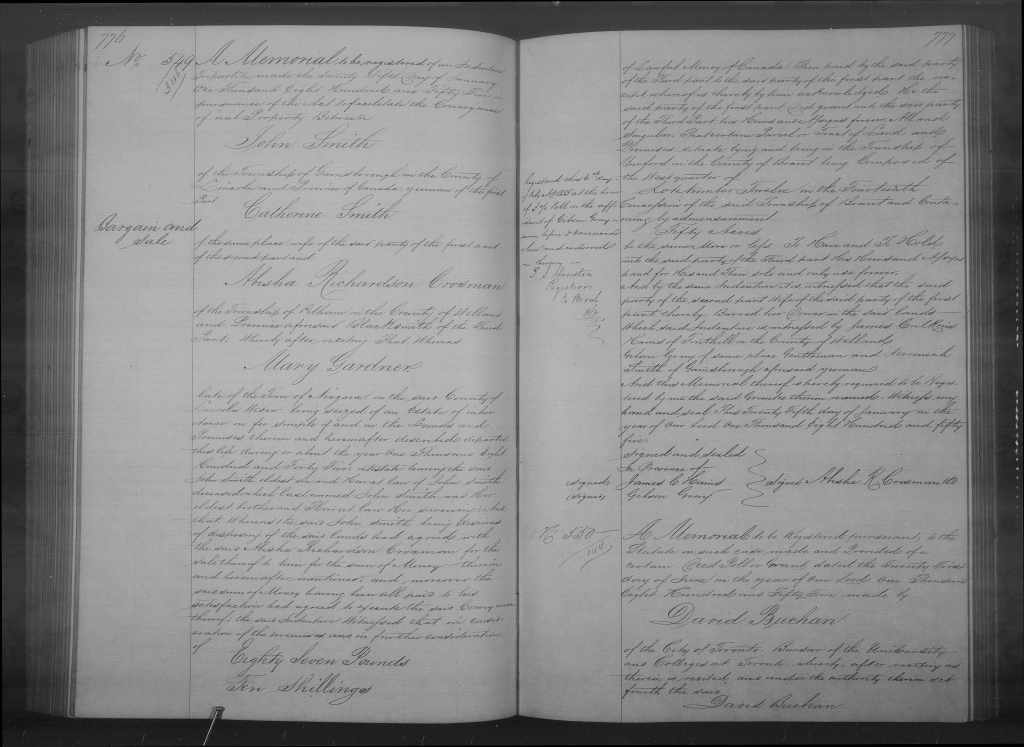 776
No. 549
A Memorial to be registered of an Indenture
tripartite made the Twenty Fifth day of January
One Thousand Eight Hundred and Fifty Five in
pursuance of the Act to facilitate the Conveyance
of real Property Between
John Smith
of the Township of Grimsborough in the County of
Lincoln and Province of Canada yeoman of the first
Part
Catherine Smith
Bargain and
Sale
of the same place wife of the said party of the first part
of the second part and
Abisha Richardson Crosman
of the Township of Pelham in the County of Welland
and Province aforesaid Blacksmith of the Third
Part. Whereby after reciting That Whereas
Mary Gardner
late of the Town of Niagara in the said County of
Lincoln being seized of an Estate of inher
itance in fee simple of and in the Lands and
Premises therein and hereinafter described departed
this life during or about the year One Thousand Eight
Hundred and Forty intestate leaving the said
John Smith eldest son and Heir at law of John Smith
deceased which last named John Smith was her
eldest brother and Heir at law her surviving And
that Whereas the said John Smith being desirous
of disposing of the said Lands had agreed with
the said Abisha Richardson Crosman for the
sale thereof to him for the sum of Money therein
and hereinafter mentioned and moreover the
said sum of Money having been all paid to his
satisfaction had agreed to execute the said Conveyance
thereof the said Indenture Witnessed that in consid-
eration of the premises and in further consideration
of
Eighty Seven Pounds
Ten Shillings
777
of Lawful Money of Canada then paid by the said party
of the Third part to the said party of the first part the re-
ceipt whereof is thereby by him acknowledged He the
said party of the first part Did grant unto the said party
of the Third Part his Heirs and Assigns forever All and
Singular That certain Parcel or Tract of Land and
Premises situate lying and being in the Township of
Burford in the County of Brant being Composed of
the West quarter of
Lot Number Twelve in the Fourteenth
Concession of the said Township of Burford and Contai-
ning by admeasurement
Fifty Acres
be the same More or less To Have and To Hold
unto the said party of the Third part His Heirs and Assigns
to and for His and Their sole and only use forever.
And by the same Indenture it is witnessed that the said
party of the second part Wife of the said party of the first
part thereby Barred her Dower in the said Lands
Which said Indenture is witnessed by James
Haines of Fonthill in the County of Welland
Gideon Gray of same place Gentleman and
Smith of Grimsborough aforesaid yeoman
And this Memorial thereof is hereby required to be Regis
tered by me the said Grantee therein named. Witness my
hand and seal This Twenty Fifth day of January in the
year of Our Lord One Thousand Eight Hundred and fifty
five
Signed and Sealed
In Presence of
signed James C Haines
signed Gideon Gray
signed Abisha R Crosman
Registered this 6th day
at the hour
Registrar
No 550
A Memorial to be Registered pursuant to the
Statute in such case made and Provided of a
certain Deed Poll or Grant dated the Twenty
day of June in the year of Our Lord One Thousand
Eight Hundred and Fifty Five made by
David Buchan
of the City of Toronto Bursar of the University
and Colleges at Toronto whereby after reciting as
therein is recited and under the authority therein set
forth the said
David Buchan